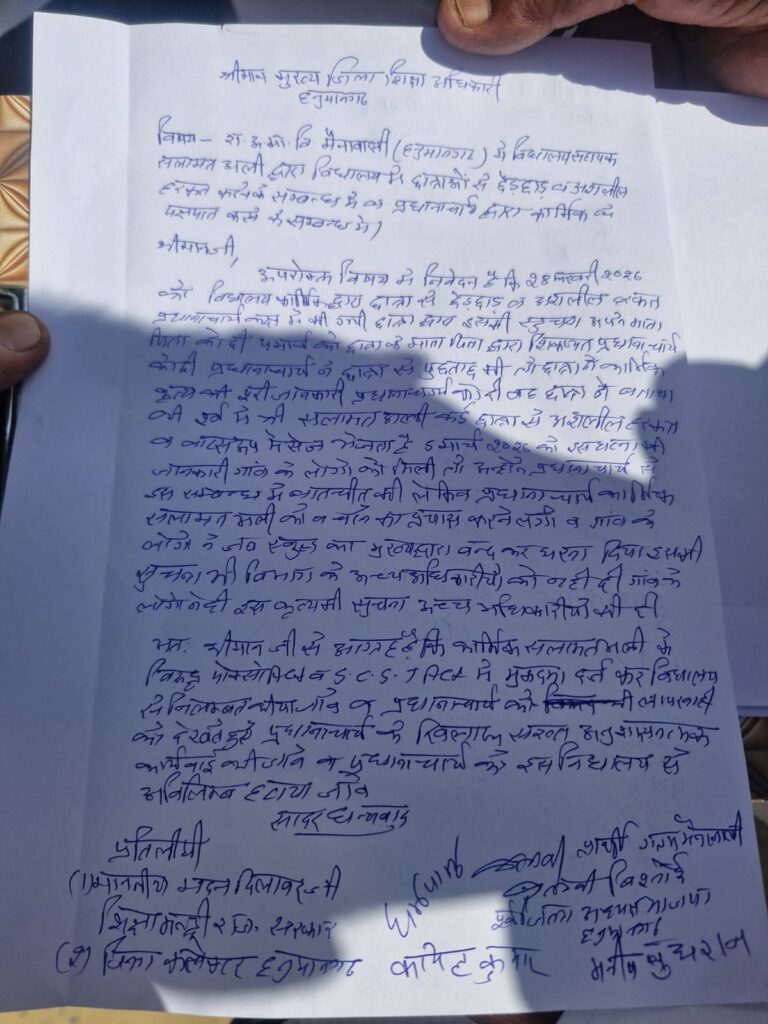 श्रीमान मुख्य जिला शिक्षा अधिकारी
हनुमानगढ़
विषय - रा.उ.मा.वि. मैनावाली (हनुमानगढ़) में विद्यालय सहायक
सलामत अली द्वारा विद्यालय में छात्राओं से छेड़छाड़ व अश्लील
हरकत करने के सम्बन्ध में व प्रधानाचार्य द्वारा कार्मिक का
पक्षपात करने के सम्बन्ध में।
श्रीमानजी,
उपरोक्त विषय में निवेदन है कि 28 फरवरी 2026
को विद्यालय कार्मिक द्वारा छात्रा से छेड़छाड़ व अश्लील हरकत
प्रधानाचार्य कक्ष में की गयी छात्रा द्वारा इसकी सूचना अपने माता
पिता को दी को छात्रा के माता पिता द्वारा शिकायत प्रधानाचार्य
को दी प्रधानाचार्य ने छात्रा से पुछताछ की तो छात्रा ने कार्मिक
कृत्य की पूरी जानकारी प्रधानाचार्य को दी छात्रा ने बताया
की पूर्व में भी सलामत अली कई छात्रा से अश्लील हरकत
व वाट्सएप मैसेज भेजता है 5 मार्च 2026 को इस घटना की
जानकारी गांव के लोगो को मिली तो उन्होंने प्रधानाचार्य से
इस सम्बन्ध में बातचीत की लेकिन प्रधानाचार्य कार्मिक
सलामत अली को बचाने का प्रयास करने लगे व गांव के
लोगो ने जब स्कूल का मुख्यद्वार बन्द कर धरना दिया इसकी
सूचना भी विभाग के उच्च अधिकारीयो को नही दी गांव के
लोगो ने ही इस कृत्य की सूचना उच्च अधिकारीयो को दी
अतः श्रीमान जी से आग्रह है कि कार्मिक सलामत अली के
विरुद्ध पोक्सो Act व S.C.S.T Act में मुकदमा दर्ज कर विद्यालय
से निलम्बित किया जावे व प्रधानाचार्य की लापरवाही
को देखते हुए प्रधानाचार्य के खिलाफ सख्त अनुशासनात्मक
कार्यवाई की जावे व प्रधानाचार्य को इस विद्यालय से
अविलम्ब हटाया जावे
सादर धन्यवाद
प्रतिलीपी
(1) माननीय मदन दिलावर जी
शिक्षा मन्त्री राज. सरकार
(2) जिला कलेक्टर हनुमानगढ़
प्रार्थी ग्राम मैनावाली
बिश्नोई
पूर्व जिला अध्यक्ष भाजपा
हनुमानगढ़
कुमार